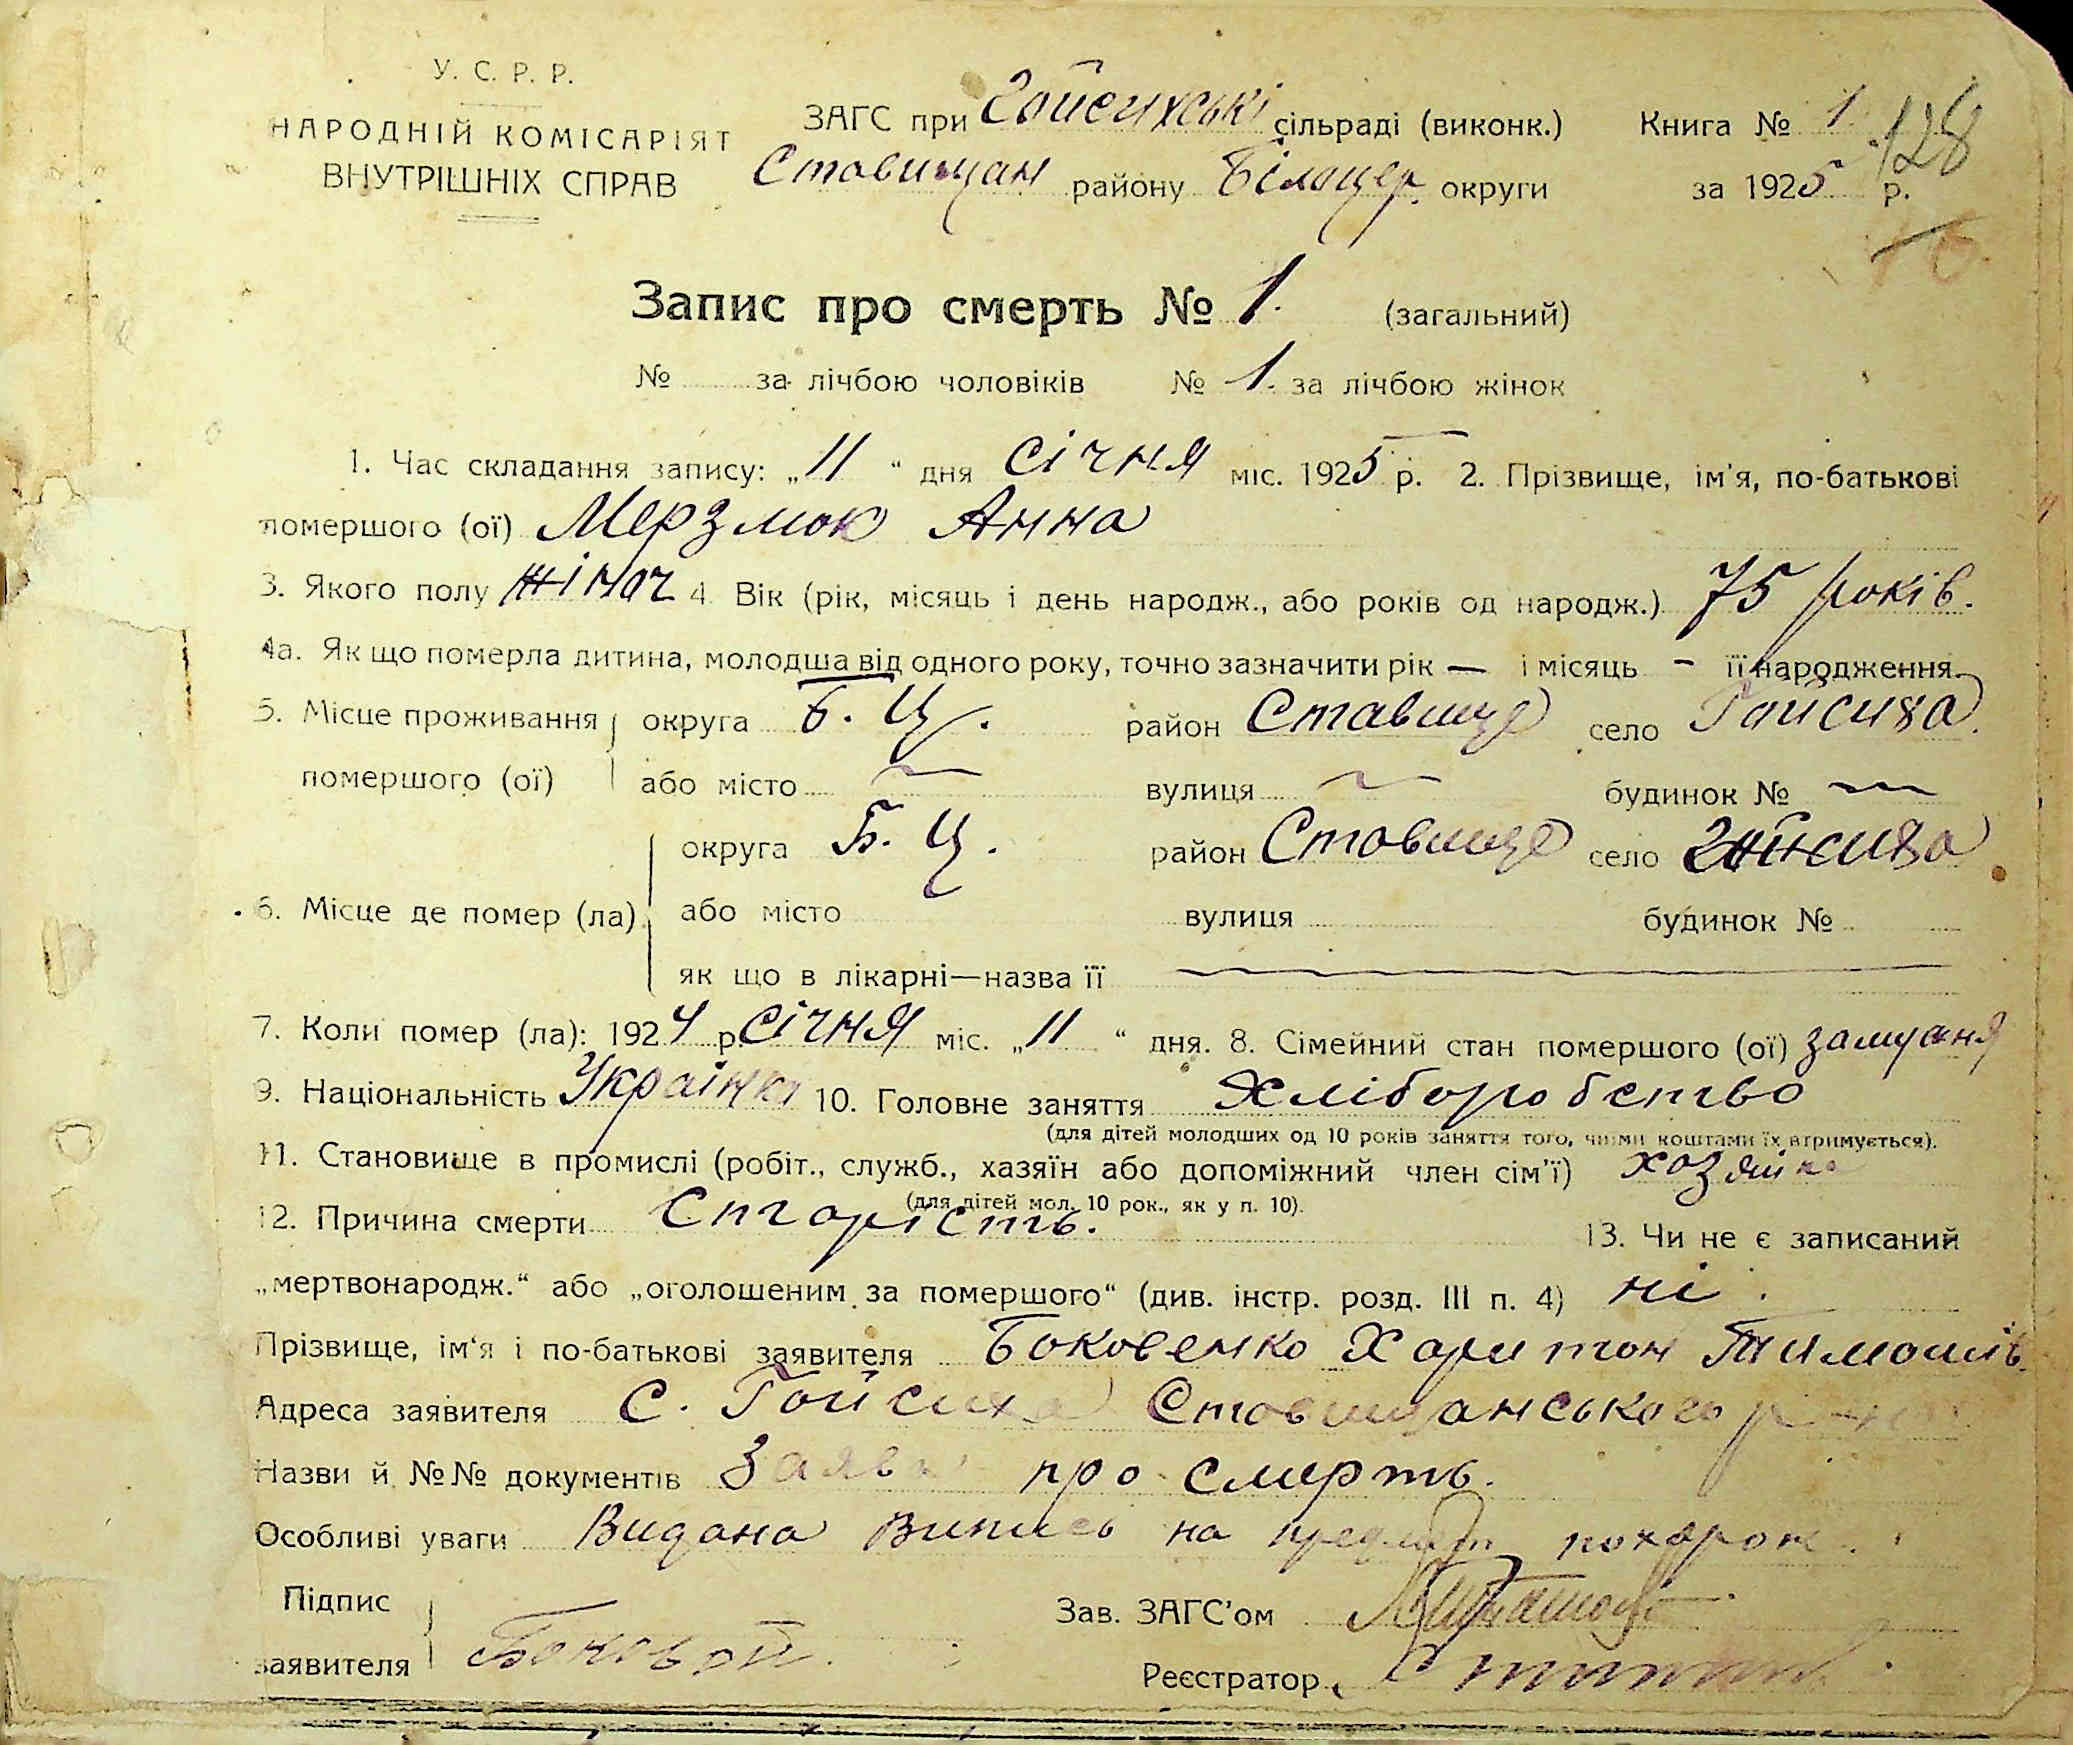 У. С. Р. Р.
НАРОДНІЙ КОМІСАРІЯТ
ВНУТРІШНІХ СПРАВ
ЗАГС при Гойсихські сільраді (виконк.) Книга № 1. 128
Ставищан району Білоцер. округи за 1925 р.
Запис про смерть № 1. (загальний)
№ за лічбою чоловіків № 1. за лічбою жінок
1. Час складання запису: „11“ дня Січня міс. 1925 р. 2. Прізвище, ім'я, по-батькові
помершого (ої) Мерзлюк Анна
3. Якого полу жіноч 4. Вік (рік, місяць і день народж., або років од народж.) 75 років.
4а. Як що померла дитина, молодша від одного року, точно зазначити рік — і місяць - її народження
5. Місце проживання округа Б. Ц. район Ставище село Гойсиха.
помершого (ої) або місто — вулиця — будинок № —
округа Б. Ц. район Ставище село Гойсиха
6. Місце де помер (ла) або місто вулиця будинок №
як що в лікарні—назва її —
7. Коли помер (ла): 1924 р. Січня міс. „11“ дня. 8. Сімейний стан помершого (ої)
9. Національність Українка 10. Головне заняття Хліборобство
(для дітей молодших од 10 років заняття того, чиїми коштами їх втримується).
11. Становище в промислі (робіт., служб., хазяїн або допоміжний член сім'ї) хозяйка
(для дітей мол. 10 рок., як у п. 10).
12. Причина смерти Старість. 13. Чи не є записаний
„мертвонародж.“ або „оголошеним за помершого“ (див. інстр. розд. III п. 4) ні.
Прізвище, ім'я і по-батькові заявителя Боковенко Харитон Тимошів.
Адреса заявителя С. Гойсиха Ставищанського
Назви й №№ документів Заява про смерть.
Особливі уваги Видана Випись на предмет похорон.
Підпис
заявителя Боковой.
Зав. ЗАГС'ом
Реєстратор